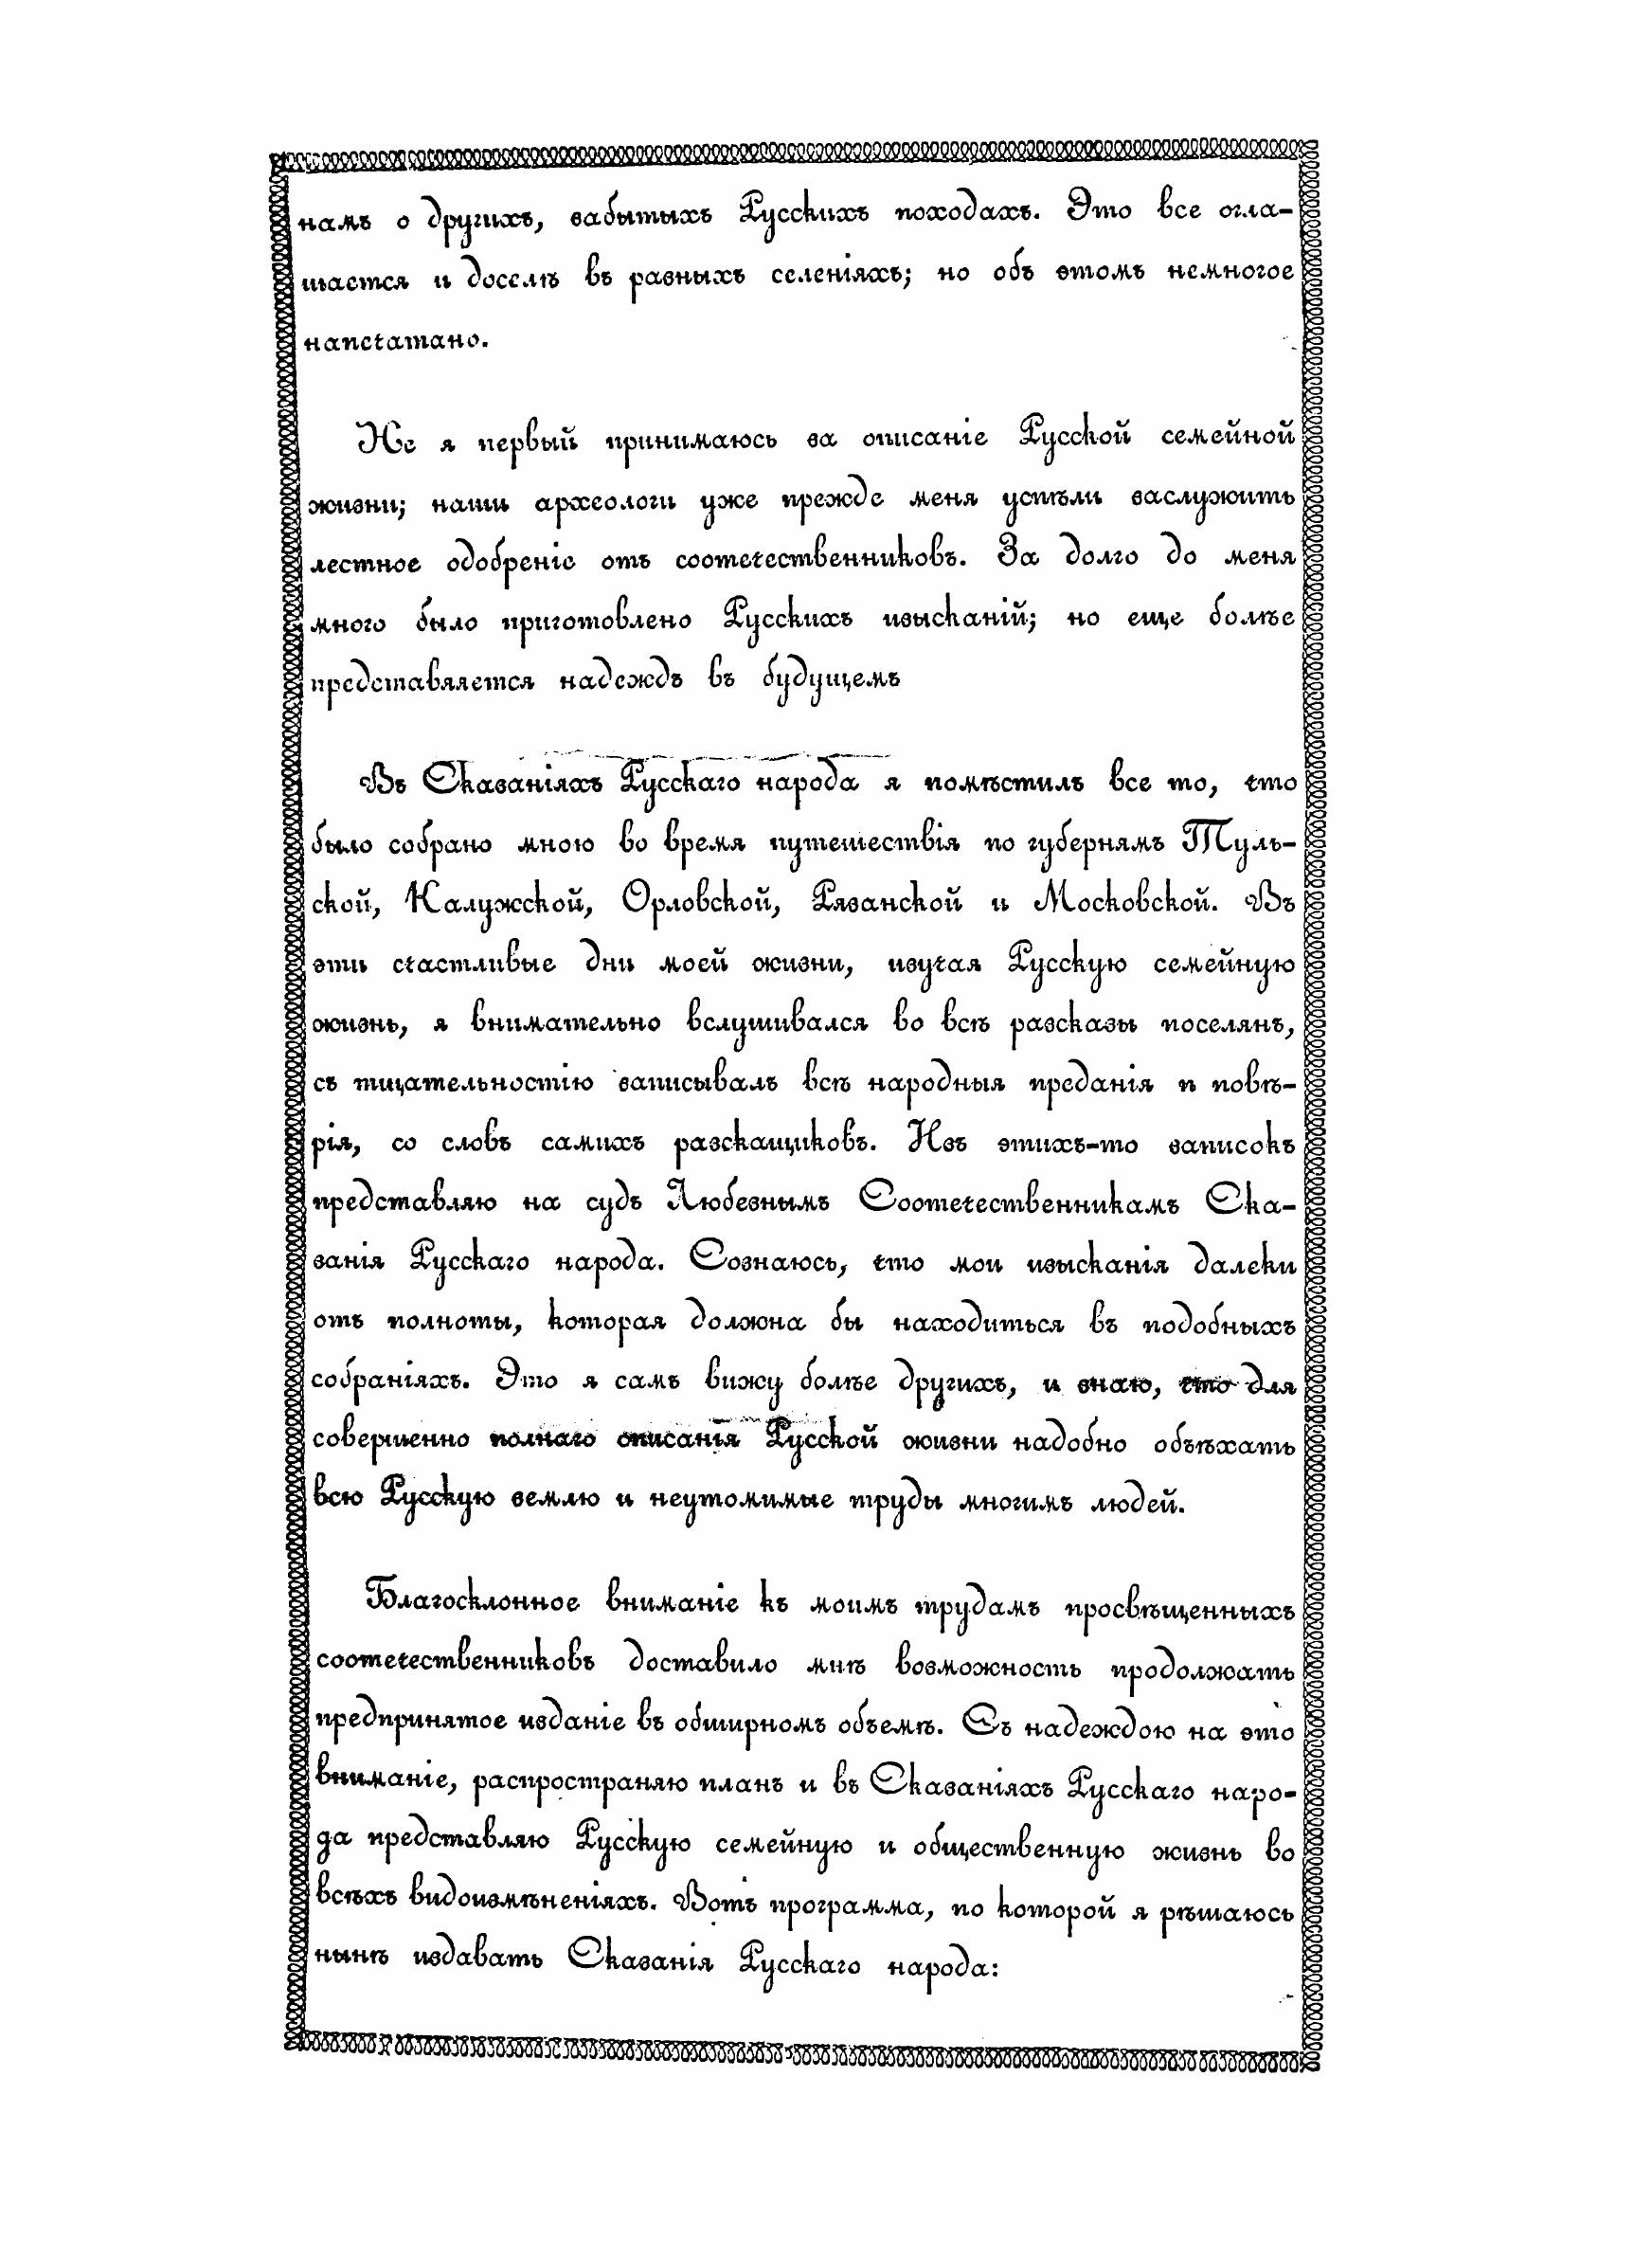 намъ о другихъ, забытыхъ Русскихъ походахъ. Это все огла-
шается и доселѣ въ разныхъ селеніяхъ; но объ этомъ немногое
напечатано.
Не я первый принимаюсь за описаніе Русской семейной
жизни; наши археологи уже прежде меня успѣли заслужить
лестное одобреніе отъ соотечественниковъ. За долго до меня
много было приготовлено Русскихъ изысканій; но еще болѣе
представляется надеждъ въ будущемъ
Въ Сказаніяхъ Русскаго народа я помѣстилъ все то, что
было собрано мною во время путешествія по губернямъ Туль-
ской, Калужской, Орловской, Рязанской и Московской. Въ
эти счастливые дни моей жизни, изучая Русскую семейную
жизнь, я внимательно вслушивался во всѣ разсказы поселянъ,
съ тщательностію записывалъ всѣ народныя преданія и повѣ-
рія, со словъ самихъ разскащиковъ. Изъ этихъ-то записокъ
представляю на судъ Любезнымъ Соотечественникамъ Ска-
занія Русскаго народа. Сознаюсь, что мои изысканія далеки
отъ полноты, которая должна бы находиться въ подобныхъ
собраніяхъ. Это я самъ вижу болѣе другихъ, и знаю, что для
совершенно полнаго описанія Русской жизни надобно объѣхать
всю Русскую землю и неутомимые труды многимъ людей.
Благосклонное вниманіе къ моимъ трудамъ просвѣщенныхъ
соотечественниковъ доставило мнѣ возможность продолжать
предпринятое изданіе въ обширномъ объемѣ. Съ надеждою на это
вниманіе, распространяю планъ и въ Сказаніяхъ Русскаго наро-
да представляю Русскую семейную и общественную жизнь во
всѣхъ видоизмѣненіяхъ. Вотъ программа, по которой я рѣшаюсь
нынѣ издавать Сказанія Русскаго народа: